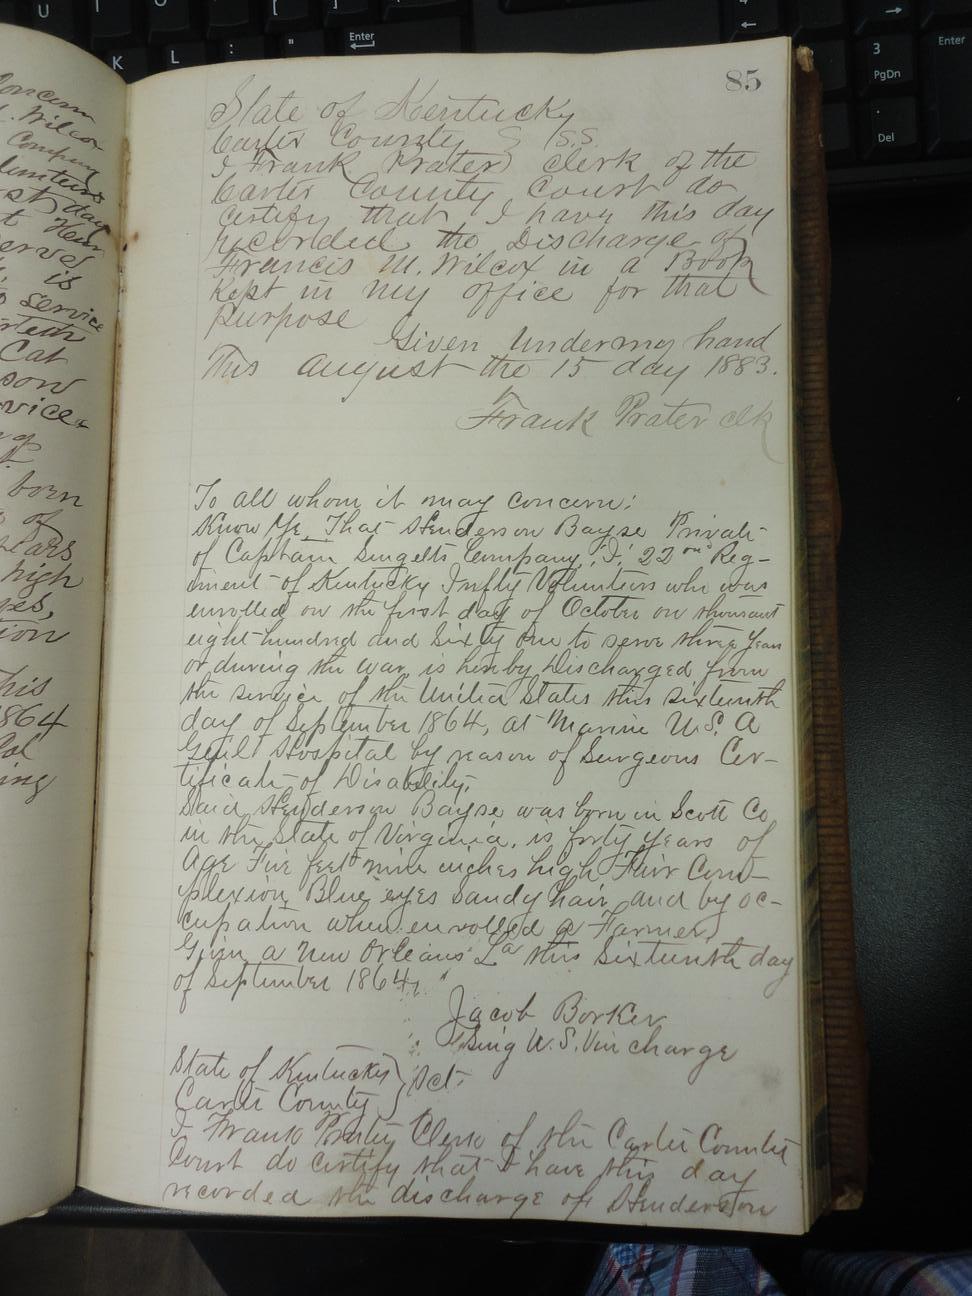 85
State of Kentucky
Carter County S SS.
I Frank Prater clerk of the
Carter County Court do
certify that I have this day
recorded the Discharge of
Francis M. Wilcox in a Book
Kept in my office for that
purpose
Given under my hand
This august the 15 day 1883.
Frank Prater clk
To all whom it may concern:
Know Ye, That Henderson Bayse Private
of Captain Company, "I," 22nd Reg-
iment of Kentucky Infty Volunteers who was
enrolled on the first day of October on thousant
eight hundred and sixty one to serve three years
or during the war, is hereby Discharged from
the service of the United States this sixteenth
day of September 1864, at Marine U.S. A
Genl Hospital by reason of Surgeons Cer-
tificate of Disability,
Said Henderson Bayse was born in Scott Co
in the State of Virginia, is forty years of
Age Five feet nine inches high Fair Com-
plexion, Blue eyes Sandy hair, and by oc-
cupation when enrolled a Farmer,
Given a New Orleans La this Sixteenth day
of September 1864,
Jacob Borker
Surg U.S.V in charge
State of Kentucky } Sct.
Carter County
I Frank Prater Clerk of the Carter County
Court do certify that I have this day
recorded the discharge of Henderson
concern
Wilcox
Company
lunteers
st day
served
is
service
Cat
son
rvice
of
born
of
years
high
yes,
tion
This
1864
Col
ing
U
I
O
P
K
L
:
;
"
'
Enter
3
PgDn
.
Del
4
Enter